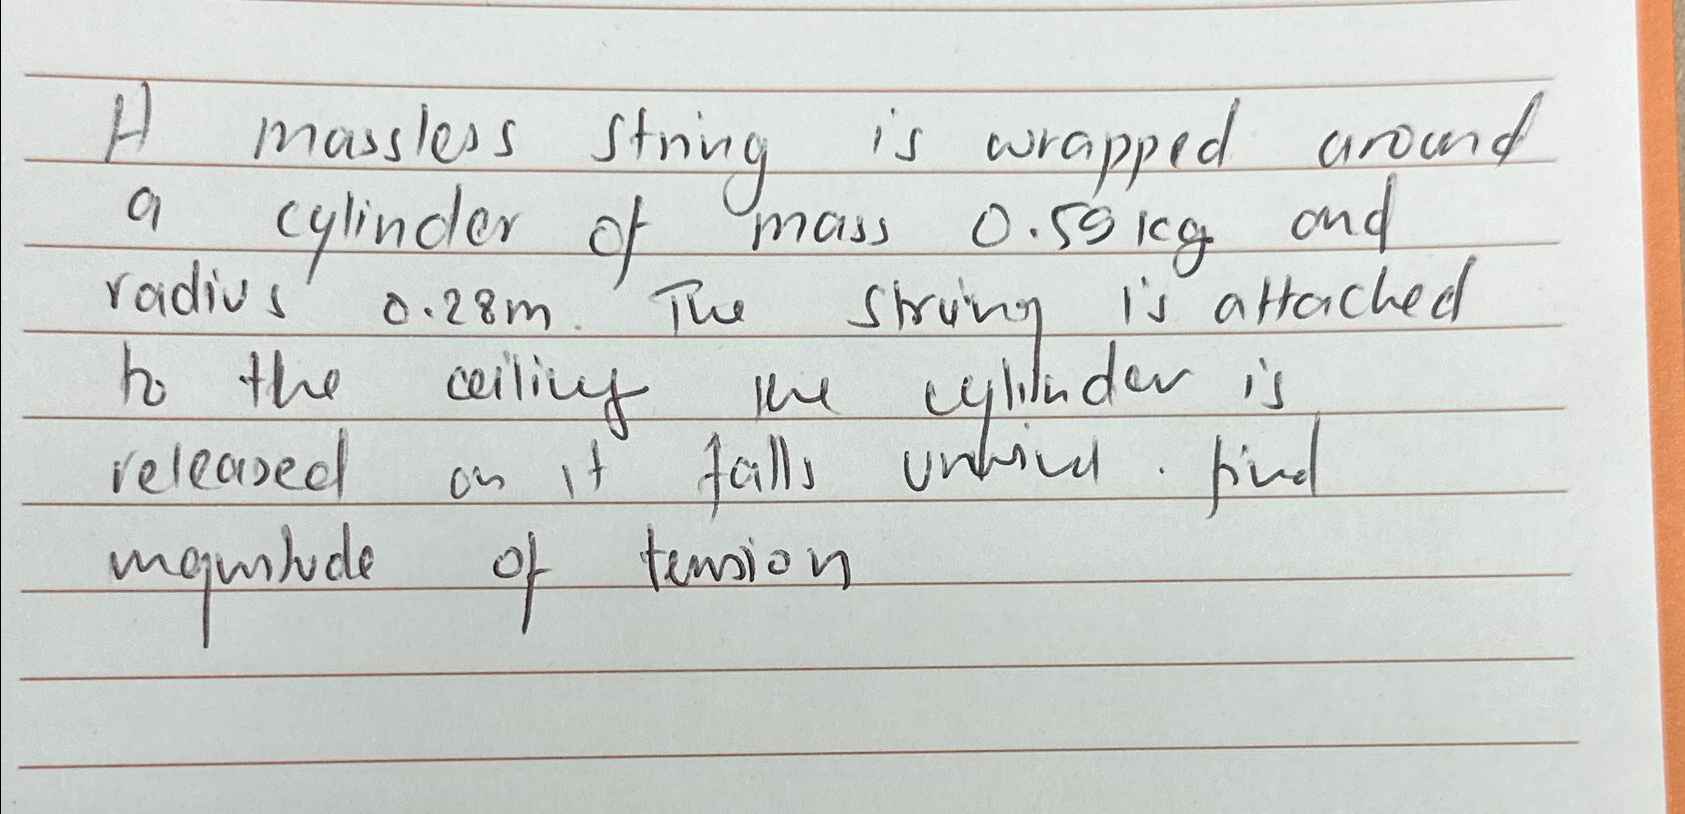 A massless string is wrapped around
a cylinder of mass 0.59 kg and
radius 0.28m. The string is attached
to the ceiling the cylinder is
released on it falls unwind. find
magnitude of tension